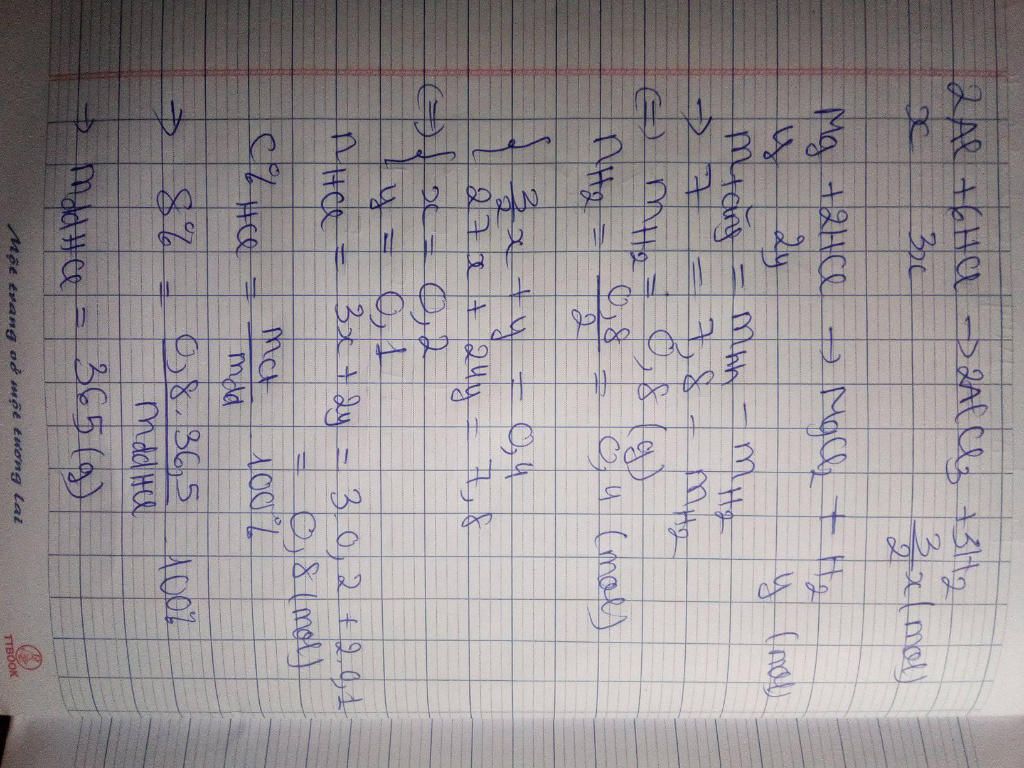 2Al + 6HCl → 2AlCl3 + 3H2
x 3x 3/2 x (mol)
Mg + 2HCl → MgCl2 + H2
y 2y y (mol)
m tăng = mhh - mH2
→ 7 = 7,8 - mH2
(=) mH2 = 0,8 (g)
nH2 = 0,8/2 = 0,4 (mol)
{ 3/2 x + y = 0,4
27x + 24y = 7,8
(=) { x = 0,2
y = 0,1
nHCl = 3x + 2y = 3.0,2 + 2.0,1
= 0,8 (mol)
C% HCl = mct/mdd . 100%
→ 8% = 0,8.36,5/mddHCl . 100%
→ mddHCl = 365 (g)
Một trang vở một tương lai
TTBOOK